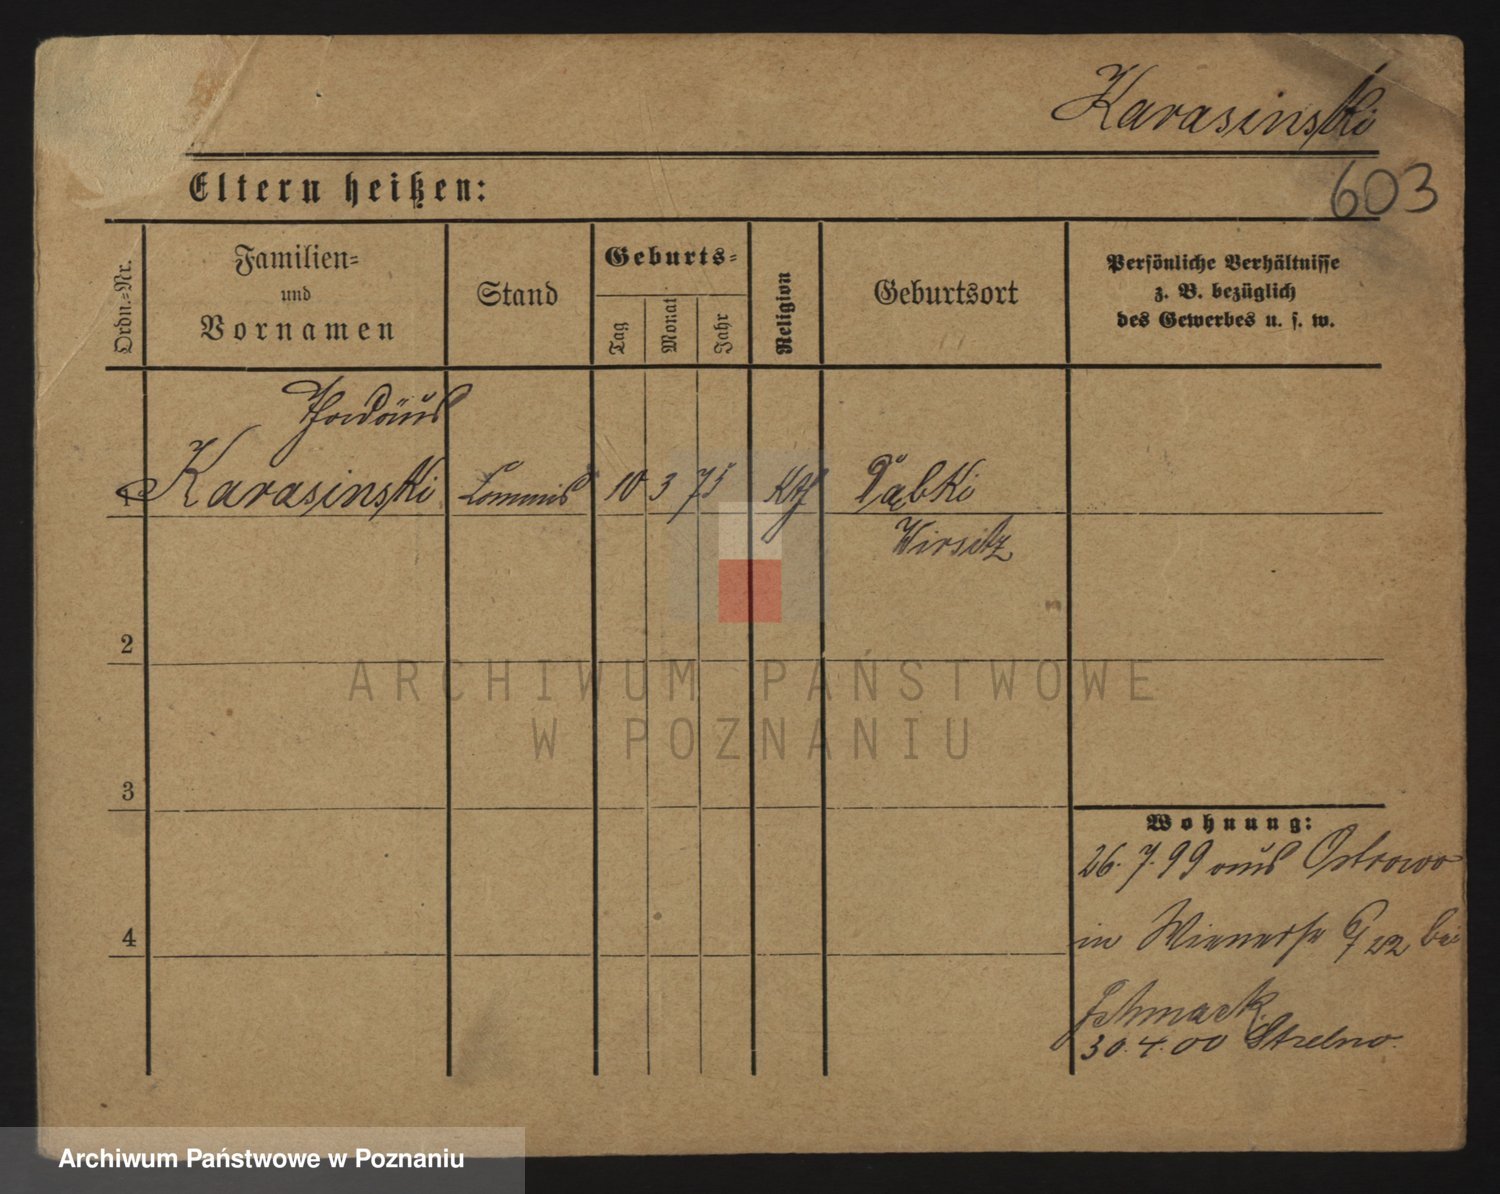 Karasinski
603
Eltern heißen:
Ordn.=Nr.
Familien=
und
Vornamen
Stand
Geburts=
Tag
Monat
Jahr
Religion
Geburtsort
Persönliche Verhältnisse
z. B. bezüglich
des Gewerbes u. s. w.
Thadäus
1 Karasinski Commis 10 3 75 Kth Dąbki
Wirsitz
2
3
4
Wohnung:
26. 7. 99 aus Ostrowo
in Wienerstr 6/7 22 bei
30. 4. 00 Strelno.
ARCHIWUM PAŃSTWOWE
W POZNANIU
Archiwum Państwowe w Poznaniu